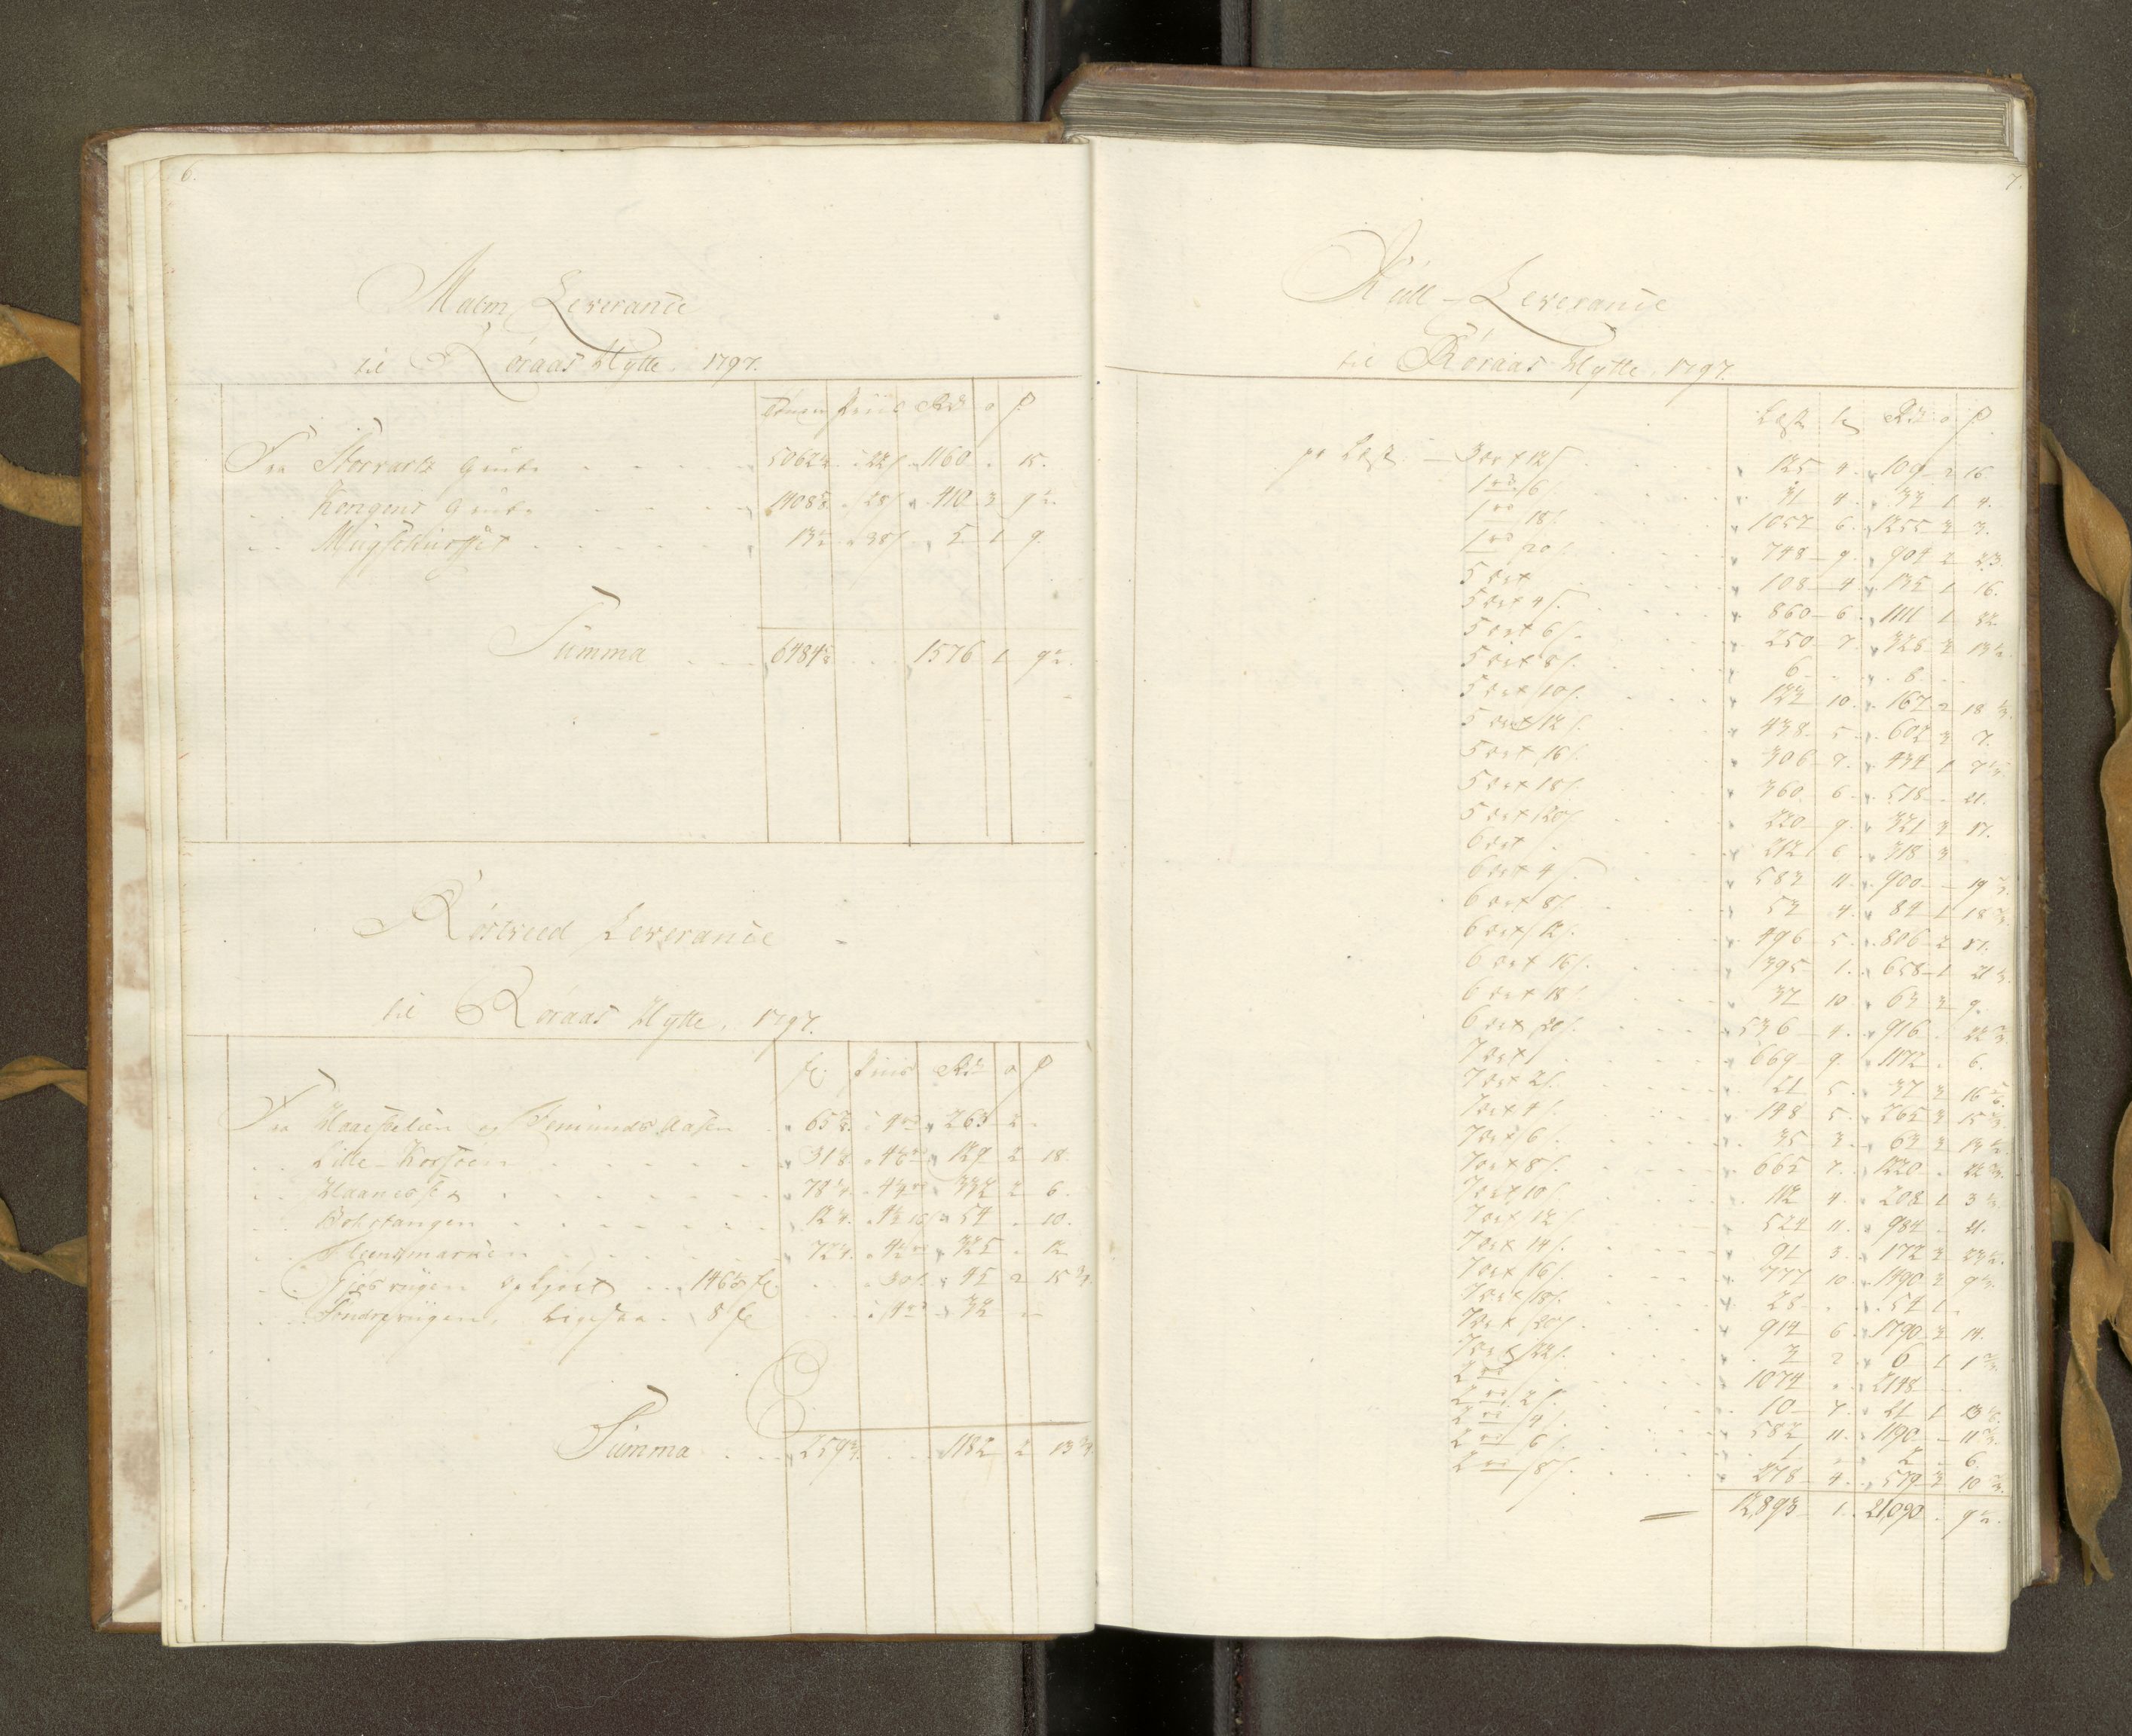 6.
Malm Leverance
til Röraas Hytte, 1797.
Tönner Priis Rd o s
Fra Storvartz Grube 5062½ 22s 1160 . 15.
Kongens Grube 1408 28s 410 3 9½
Mugschurffet 13½ 38s 5 1 9.
Summa 6484 1576 1 9½.
Röstveed Leverance
til Röraas Hytte, 1797.
fv. Priis Rd o s
Fra Haaesbelien og Femunds Aasen 65 4 rd 263 2
Lille-Korssöen 31 129 2 18.
Haanesset 78 332 2 6.
Bokstangen 12 54 . 10.
72 325 . 12
opkjört 146 30s 45 2 15¾.
Söndrevigen, ligesaa 8 4 rd 32
Summa 259 1182 2 13¾.
7.
Kull-Leverance
til Röraas Hytte, 1797.
Læst Rd o s
pr Læst 3 ort 12s 125 4. 109 2 16.
1 rd 6s 31 4. 32 1 4.
1 rd 18s 1057 6. 1255 2 3.
1 rd 20s 748 9. 904 2 23.
5 ort 108 4 135 1 16.
5 ort 4s. 860 6 1111 1 22.
5 ort 6s. 250 7. 326 2 13½.
5 ort 8s. 6 8.
5 ort 10s. 122 10. 167 2 18⅓.
5 ort 12s. 438 5 602 3 7.
5 ort 16s. 306 7. 434 1 7⅓.
5 ort 18s. 360 6 518 . 21.
5 ort 20s 220 9. 321 3 17.
6 ort 212 6 318 3
6 ort 4s. 583 11. 900 19⅔.
6 ort 8s 53 4. 84 1 18⅔.
6 ort 12s. 496 5. 806 2 21.
6 ort 16s. 395 1. 658 1 21⅓.
6 ort 18s 37 10 63 3 9.
6 ort 20s. 536 4. 916 . 22⅔
7 ort 669 9. 1172 . 6.
7 ort 2s. 21 5. 37 3 16⅚.
7 ort 4s. 148 5. 265 3 15⅔.
7 ort 6s. 35 3. 63 3 13½.
7 ort 8s. 665 7. 1220 . 22⅔.
7 ort 10s. 112 4. 208 1 3⅓.
7 ort 12s. 524 11. 984 . 21.
7 ort 14s. 91 3. 172 3 23½.
7 ort 16s. 777 10. 1490 3 9⅓.
7 ort 18s. 28 54 1
7 ort 20s. 914 6. 1790 3 14.
7 ort 22s. 3 2 6 1 1⅔.
2 rd 1074 2148
2 rd 2s. 10 7. 21 1 13⅙.
2 rd 4s. 582 11. 1190 11⅔.
2 rd 6s. 1 2 . 6.
2 rd 8s. 278 4. 579 3 10⅔.
12,893 1. 21,090 . 9½.